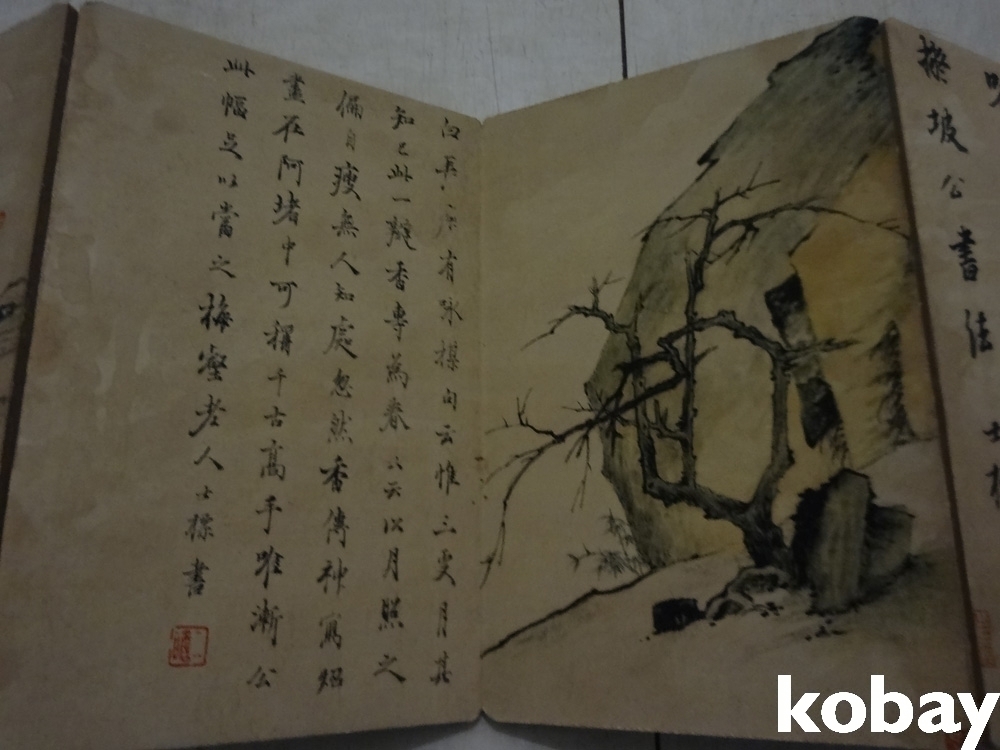 坡公書法
有詠楳句云惟三更月其
知己此一瓣香專為春云云以月照之
偏自瘦無人知處忽然香傳神寫照
盡在阿堵中可稱千古高手唯漸公
此幅足以當之梅壑老人士標書
kobay